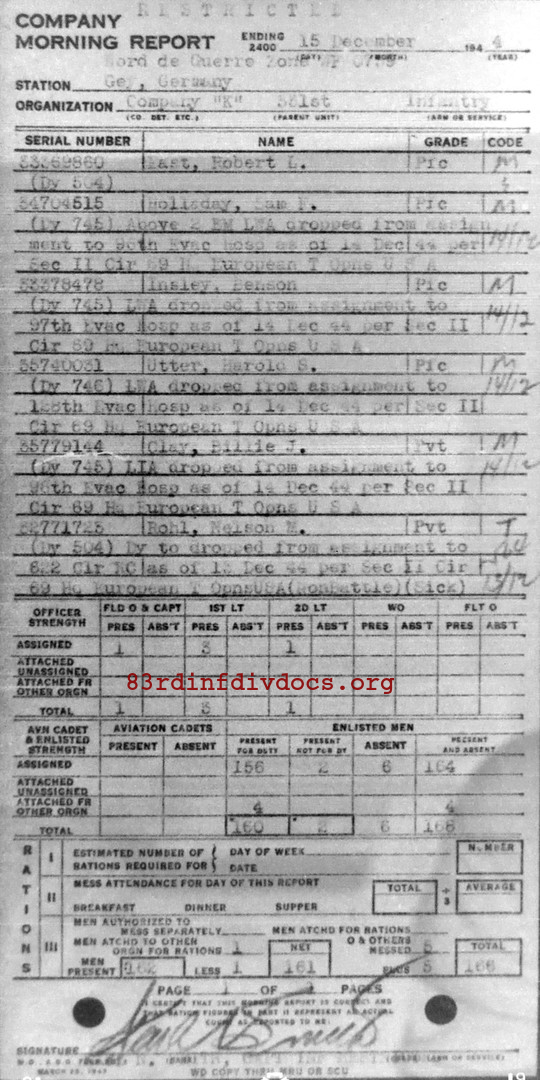 RESTRICTED
COMPANY
MORNING REPORT ENDING 2400 15 December 194 4
(DAY) (MONTH) (YEAR)
Nord de Guerre Zone
STATION Gey, Germany
ORGANIZATION Company "K" 331st Infantry
(CO. DET. ETC.) (PARENT UNIT) (ARM OR SERVICE)
SERIAL NUMBER NAME GRADE CODE
33369860 East, Robert L. Pfc M
(Dy 504)
34704515 Sam F. Pfc M
(Dy 745) Above 2 EM LWA dropped from assign
ment to 96th Evac Hosp as of 14 Dec 44 per 14/12
Sec II Cir 69 Hq European T Opns U S A
33378478 Insley, Benson Pfc M
(Dy 745) LWA dropped from assignment to 14/12
97th Evac Hosp as of 14 Dec 44 per Sec II
Cir 69 Hq European T Opns U S A
35740031 Utter, Harold S. Pfc M
(Dy 746) LWA dropped from assignment to 14/12
128th Evac Hosp as of 14 Dec 44 per Sec II
Cir 69 Hq European T Opns U S A
35779144 Clay, Billie J. Pvt M
(Dy 745) dropped from assignment to 14/12
96th Evac Hosp as of 14 Dec 44 per Sec II
Cir 69 Hq European T Opns U S A
32771725 Rohl, Nelson M. Pvt T
(Dy 504) Dy to dropped from assignment to
as of 13 Dec 44 per Sec II Cir 13/12
69 Hq European T OpnsUSA(NonBattle)(Sick)
OFFICER STRENGTH FLD O & CAPT 1ST LT 2D LT WO FLT O
PRES ABS'T PRES ABS'T PRES ABS'T PRES ABS'T PRES ABS'T
ASSIGNED 1 3 1
ATTACHED UNASSIGNED
ATTACHED FR OTHER ORGN
83rdinfdivdocs.org
TOTAL 1 3 1
AVN CADET & ENLISTED STRENGTH AVIATION CADETS ENLISTED MEN
PRESENT ABSENT PRESENT FOR DUTY PRESENT NOT FOR DY ABSENT PRESENT AND ABSENT
ASSIGNED 156 2 6 164
ATTACHED UNASSIGNED
ATTACHED FR OTHER ORGN 4 4
TOTAL 160 2 6 168
RATIONS
I ESTIMATED NUMBER OF RATIONS REQUIRED FOR { DAY OF WEEK DATE NUMBER
II MESS ATTENDANCE FOR DAY OF THIS REPORT TOTAL ÷ 3 AVERAGE
BREAKFAST DINNER SUPPER
III MEN AUTHORIZED TO MESS SEPARATELY MEN ATCHD FOR RATIONS
MEN ATCHD TO OTHER ORGN FOR RATIONS 1 NET O & OTHERS MESSED 5 TOTAL
MEN PRESENT 162 LESS 1 161 PLUS 5 166
PAGE 1 OF PAGES
I CERTIFY THAT THIS MORNING REPORT IS CORRECT AND
THAT RATION FIGURES IN PART II REPRESENT AN ACTUAL
COUNT AS REPORTED TO ME:
SIGNATURE
(NAME) (GRADE) (ARM OR SERVICE)
MARCH 25, 1943 WD COPY THRU MRU OR SCU